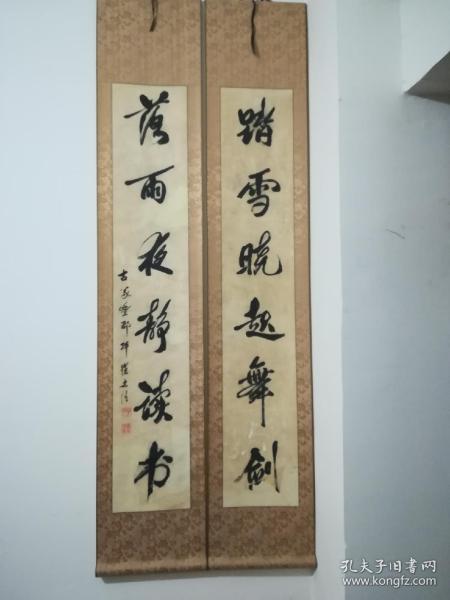 踏雪晓起舞剑
落雨夜静读书
孔夫子旧书网
www.kongfz.com